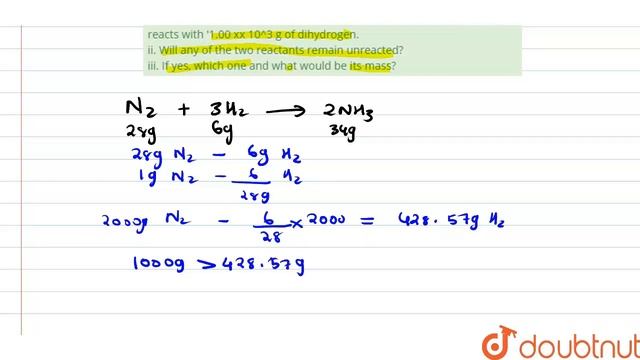 reacts with '1.00 xx 10^3 g of dihydrogen.
ii. Will any of the two reactants remain unreacted?
iii. If yes, which one and what would be its mass?
N₂ + 3H₂ → 2NH₃
28g 6g 34g
28g N₂ – 6g H₂
1g N₂ – 6/28g H₂
2000g N₂ – 6/28 × 2000 = 428.57g H₂
1000g > 428.57g
doubtnut